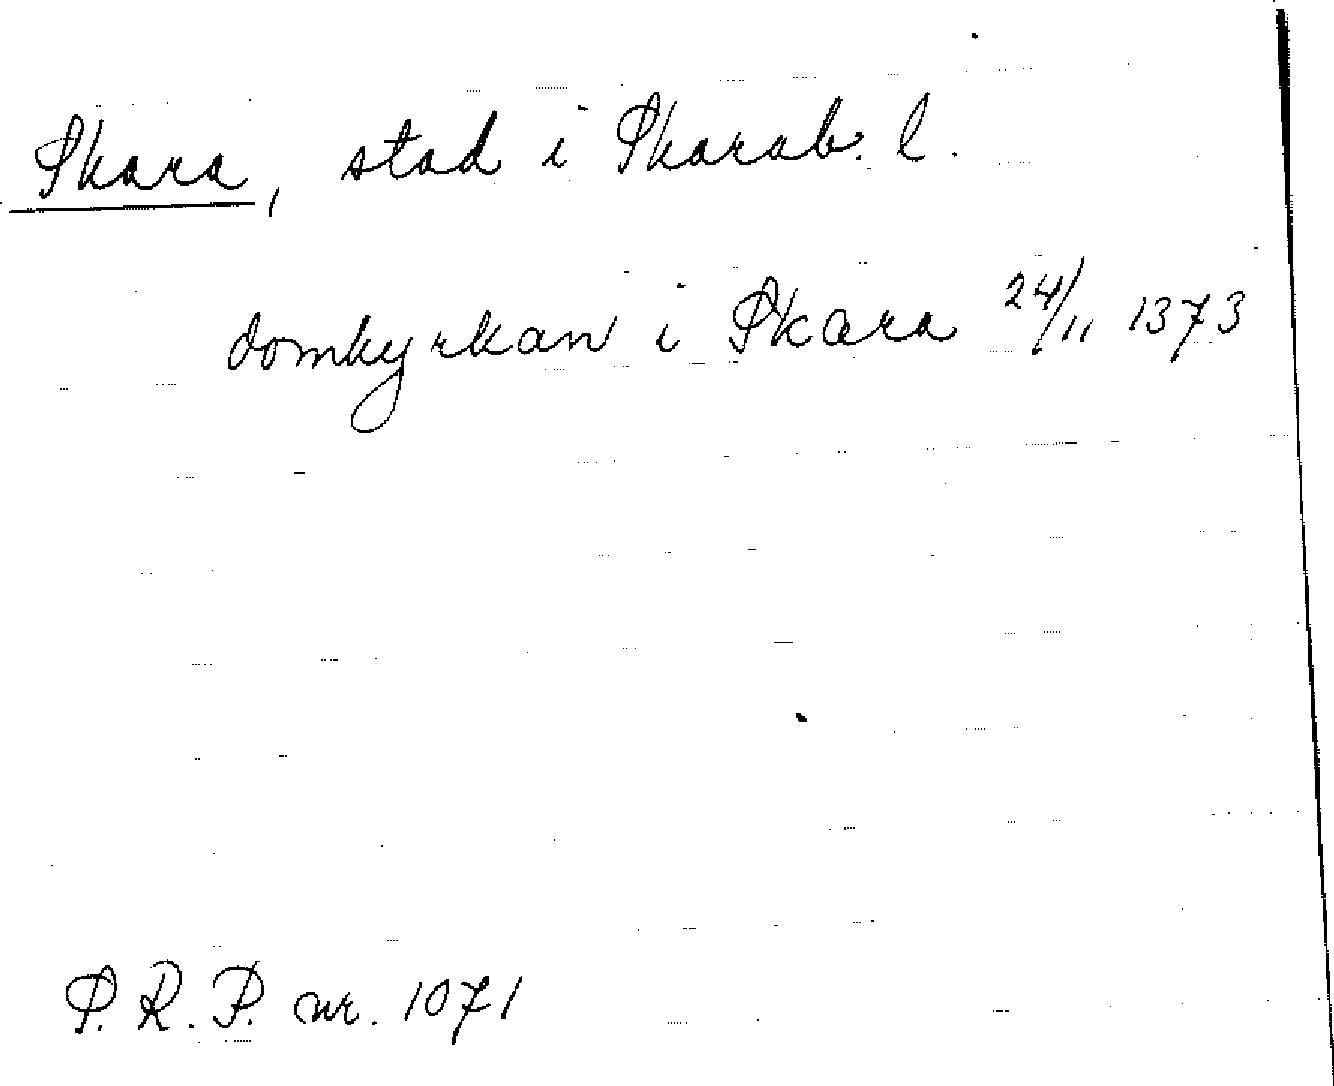 Skara, stad i Skarab. l.
domkyrkan i Skara 24/11 1373
S.R.P. nr. 1071